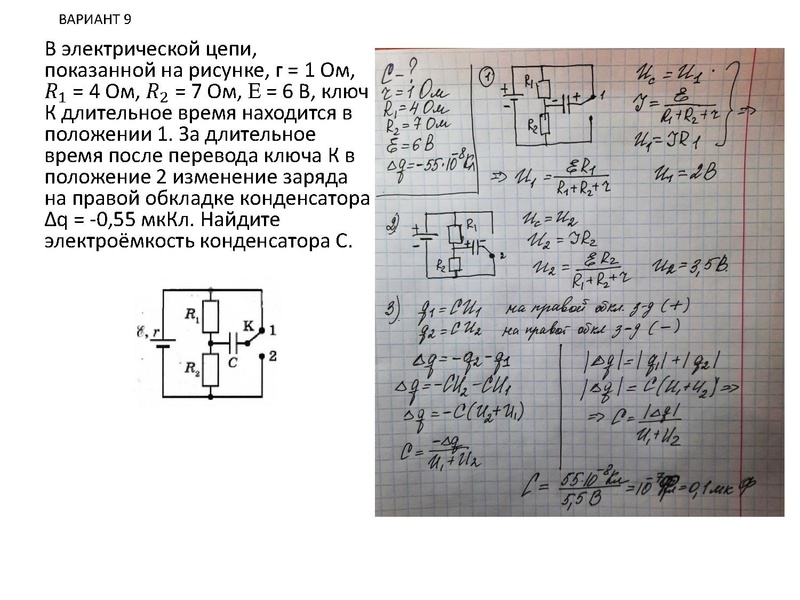 ВАРИАНТ 9
В электрической цепи,
показанной на рисунке, r = 1 Ом,
R₁ = 4 Ом, R₂ = 7 Ом, E = 6 В, ключ
К длительное время находится в
положении 1. За длительное
время после перевода ключа К в
положение 2 изменение заряда
на правой обкладке конденсатора
Δq = -0,55 мкКл. Найдите
электроёмкость конденсатора С.
ℰ, r
R₁
R₂
K
C
1
2
C - ?
r = 1 Ом
R₁ = 4 Ом
R₂ = 7 Ом
ℰ = 6 В
Δq = -55·10⁻⁸ Кл
1
+
-
R₁
R₂
- +
1
U_C = U₁
J = ℰ / (R₁+R₂+r)
U₁ = JR1
=>
=> U₁ = ℰR₁ / (R₁+R₂+r) U₁ = 2 В
2)
+
-
R₁
R₂
+ -
2
U_C = U₂
U₂ = JR₂
U₂ = ℰR₂ / (R₁+R₂+r) U₂ = 3,5 В.
3) q₁ = CU₁ на правой обкл. з-д (+)
q₂ = CU₂ на правой обкл з-д (-)
Δq = -q₂ - q₁
Δq = -CU₂ - CU₁
Δq = -C(U₂+U₁)
C = -Δq / (U₁+U₂)
|Δq| = |q₁| + |q₂|
|Δq| = C(U₁+U₂) =>
=> C = |Δq| / (U₁+U₂)
C = 55·10⁻⁸ Кл / 5,5 В = 10⁻⁷ Ф = 0,1 мкФ